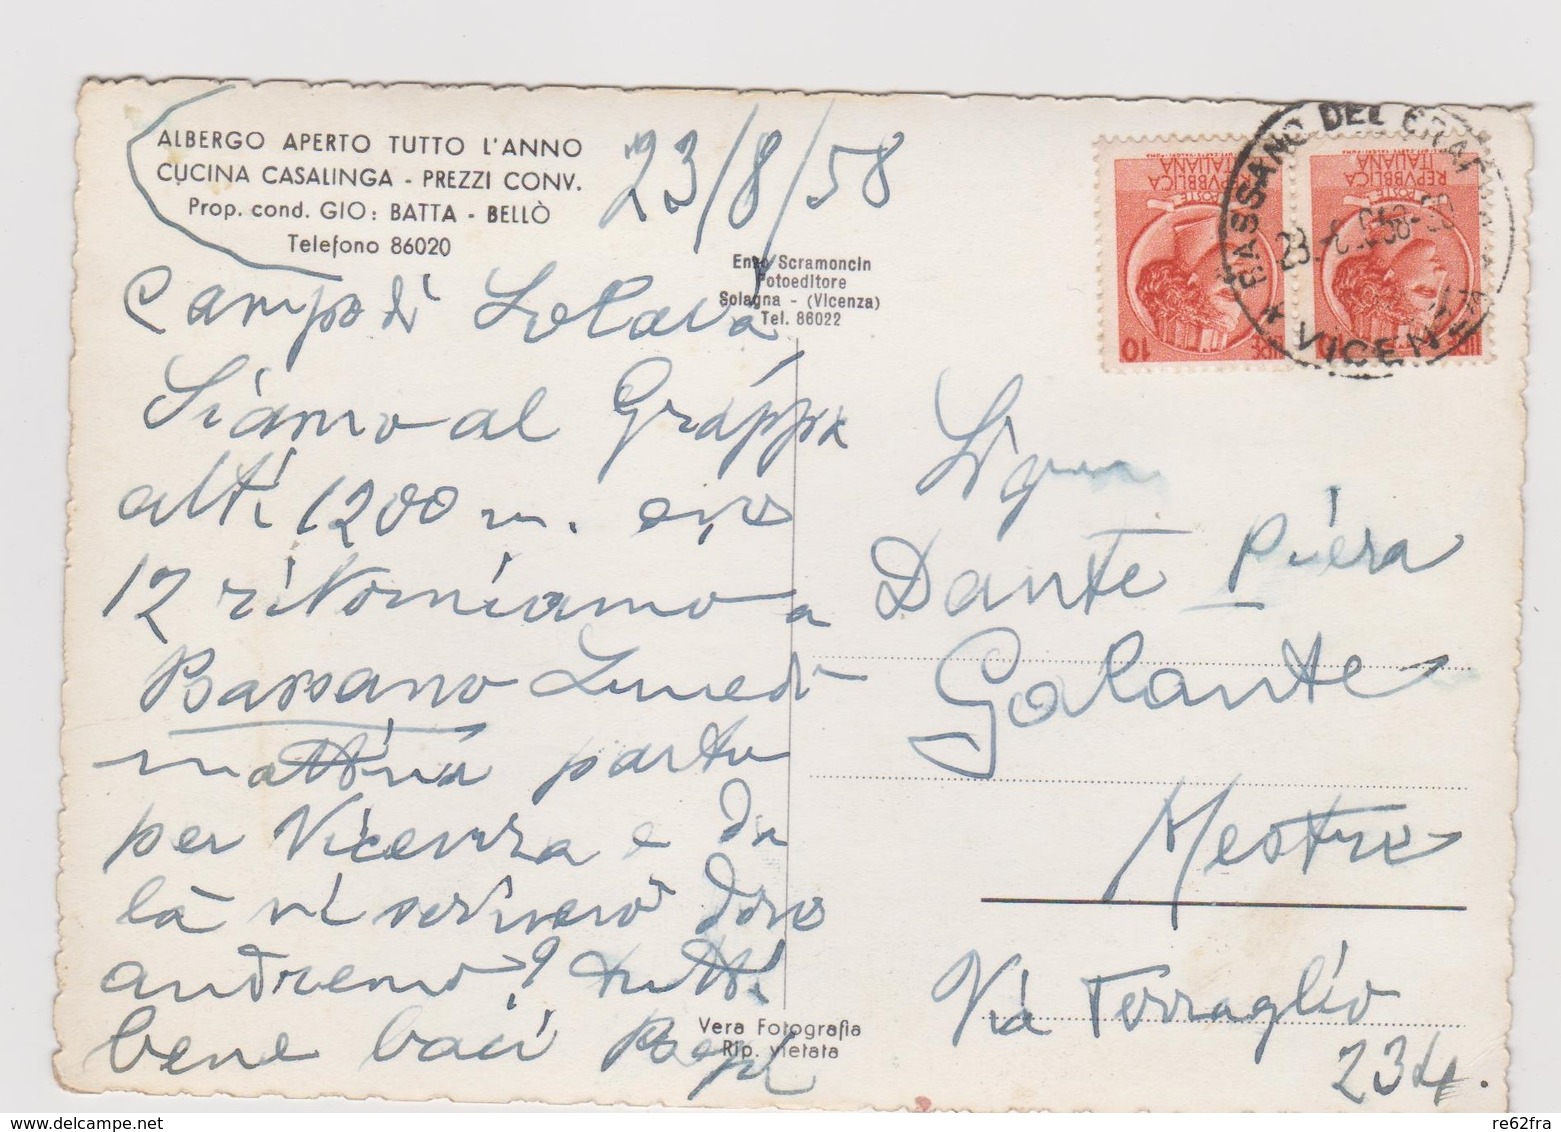 ALBERGO APERTO TUTTO L'ANNO
CUCINA CASALINGA - PREZZI CONV.
Prop. cond. GIO: BATTA - BELLÒ
Telefono 86020
23/8/58
Enzo Scramoncin
Fotoeditore
Solagna - (Vicenza)
Tel. 86022
Campo di
Siamo al Grappa
alti 1200 m. ore
12 ritorniamo a
Bassano Lunedì
mattina parto
per Vicenza e da
là vi scriverò dove
andremo? tutti
bene baci Bepi
Vera Fotografia
Rip. vietata
REPVBBLICA
ITALIANA
POSTE
10
REPVBBLICA
ITALIANA
POSTE
BASSANO DEL GRAPPA
23.-8.58
* VICENZA
Dante Piera
Galante
Mestre
Via Terraglio
234.
re62fra